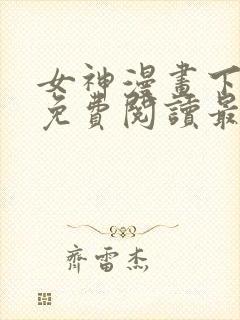 女神漫畫下
免費閱讀最
齊雷杰